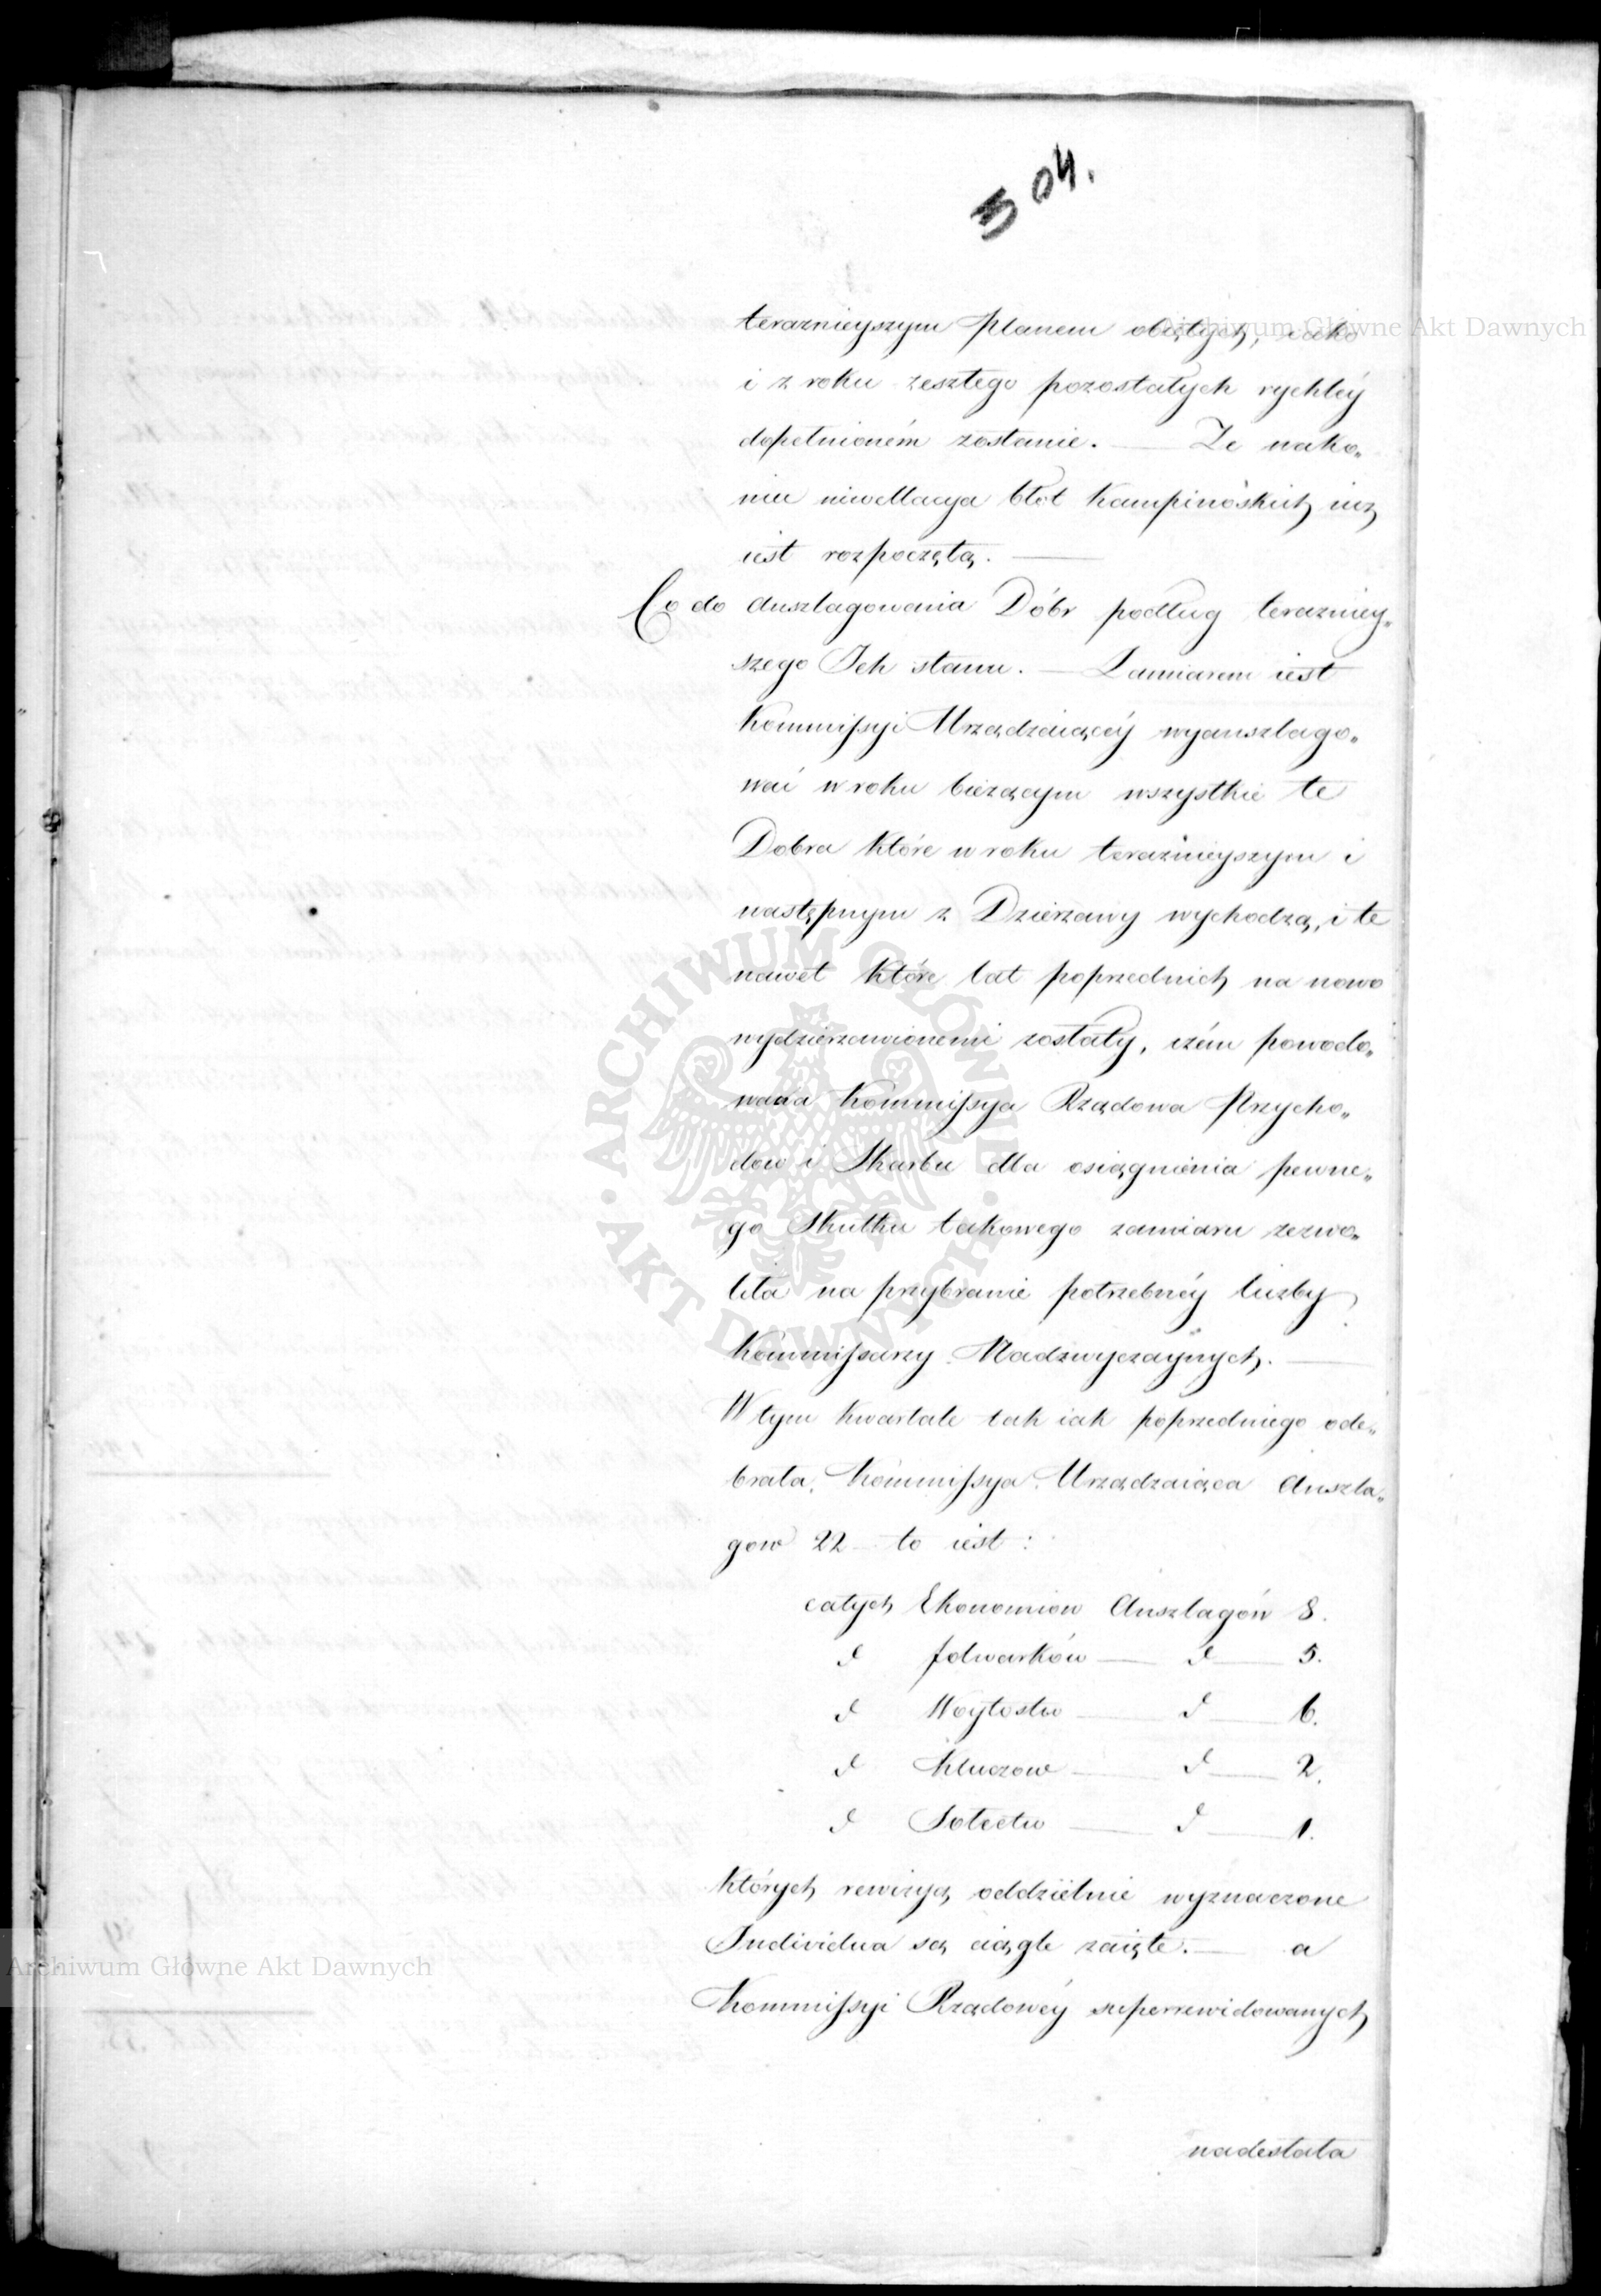 304.
teraznieyszym planem obiętych, iako
i z roku zeszłego pozostałych rychléy
dopełnioném zostanie. — Że nako„
niec niwellacya błot Kampinoskich iuż
iest rozpoczętą. —
Co do Anszlagowania Dóbr podług terazniey„
szego Ich stanu. — Zamiarem iest
Kommissyi Urządzaiącéy wyanszlago„
wać w roku bieżącym wszystkie te
Dobra które w roku teraźnieyszym i
następnym z Dzierżawy wychodzą, i te
nawet które lat poprzednich na nowo
wydzierżawionemi zostały, czém powodo„
wana Kommissya Rządowa Przycho„
dow i Skarbu dla osiągnienia pewne„
go skutku takowego zamiaru zezwo„
liła na przybranie potrzebnéy liczby
Kommissarzy Nadzwyczaynych. —
W tym kwartale tak iak poprzedniego ode„
brała Kommissya Urządzaiąca Anszla„
gow 22 — to iest :
całych Ekonomiow Anszlagów 8.
d Folwarków — d — 5.
d Woytostw — d — 6.
d Kluczow — d — 2.
d Sołectw — d — 1.
których rewizyą oddzielnie wyznaczone
Individua są ciągle zaięte. — a
Kommissyi Rządowéy superrewidowanych
nadesłała
Archiwum Główne Akt Dawnych
ARCHIWUM GŁÓWNE AKT DAWNYCH
Archiwum Główne Akt Dawnych